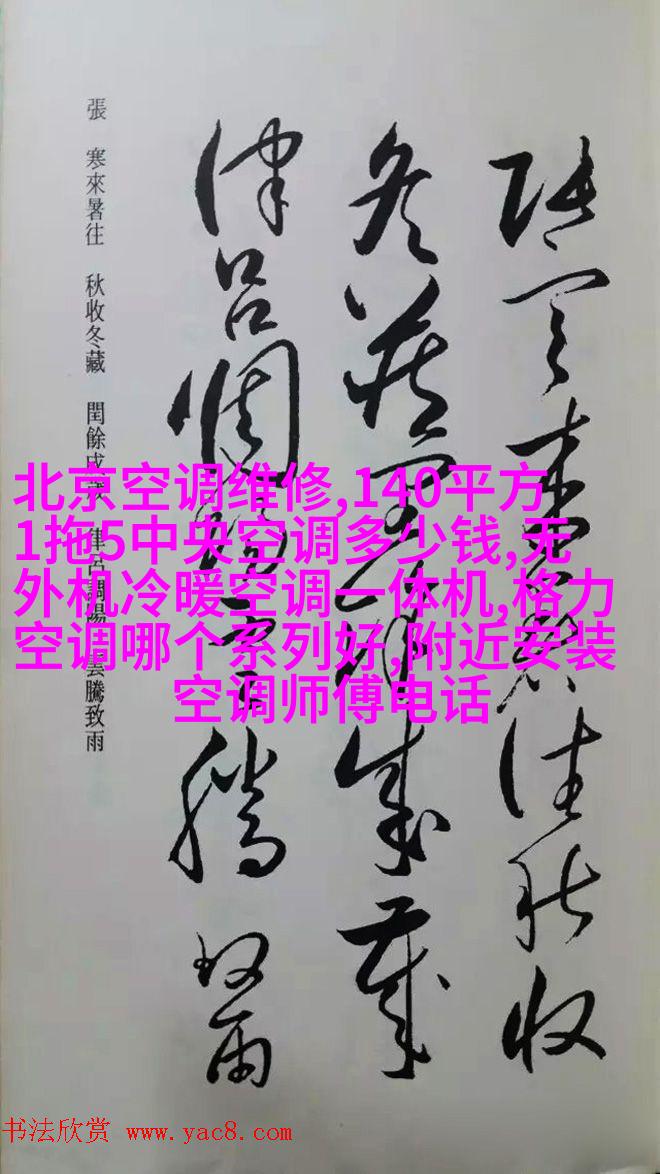 張寒來暑往秋收
冬藏閏餘成歲
律呂調陽雲騰致雨
張 寒來暑往 秋收冬藏 閏餘成歲 律呂調陽 雲騰致雨
北京空调维修,140平方
1拖5中央空调多少钱,无
外机冷暖空调一体机,格力
空调哪个系列好,附近安装
空调师傅电话
书法欣赏 www.yac8.com